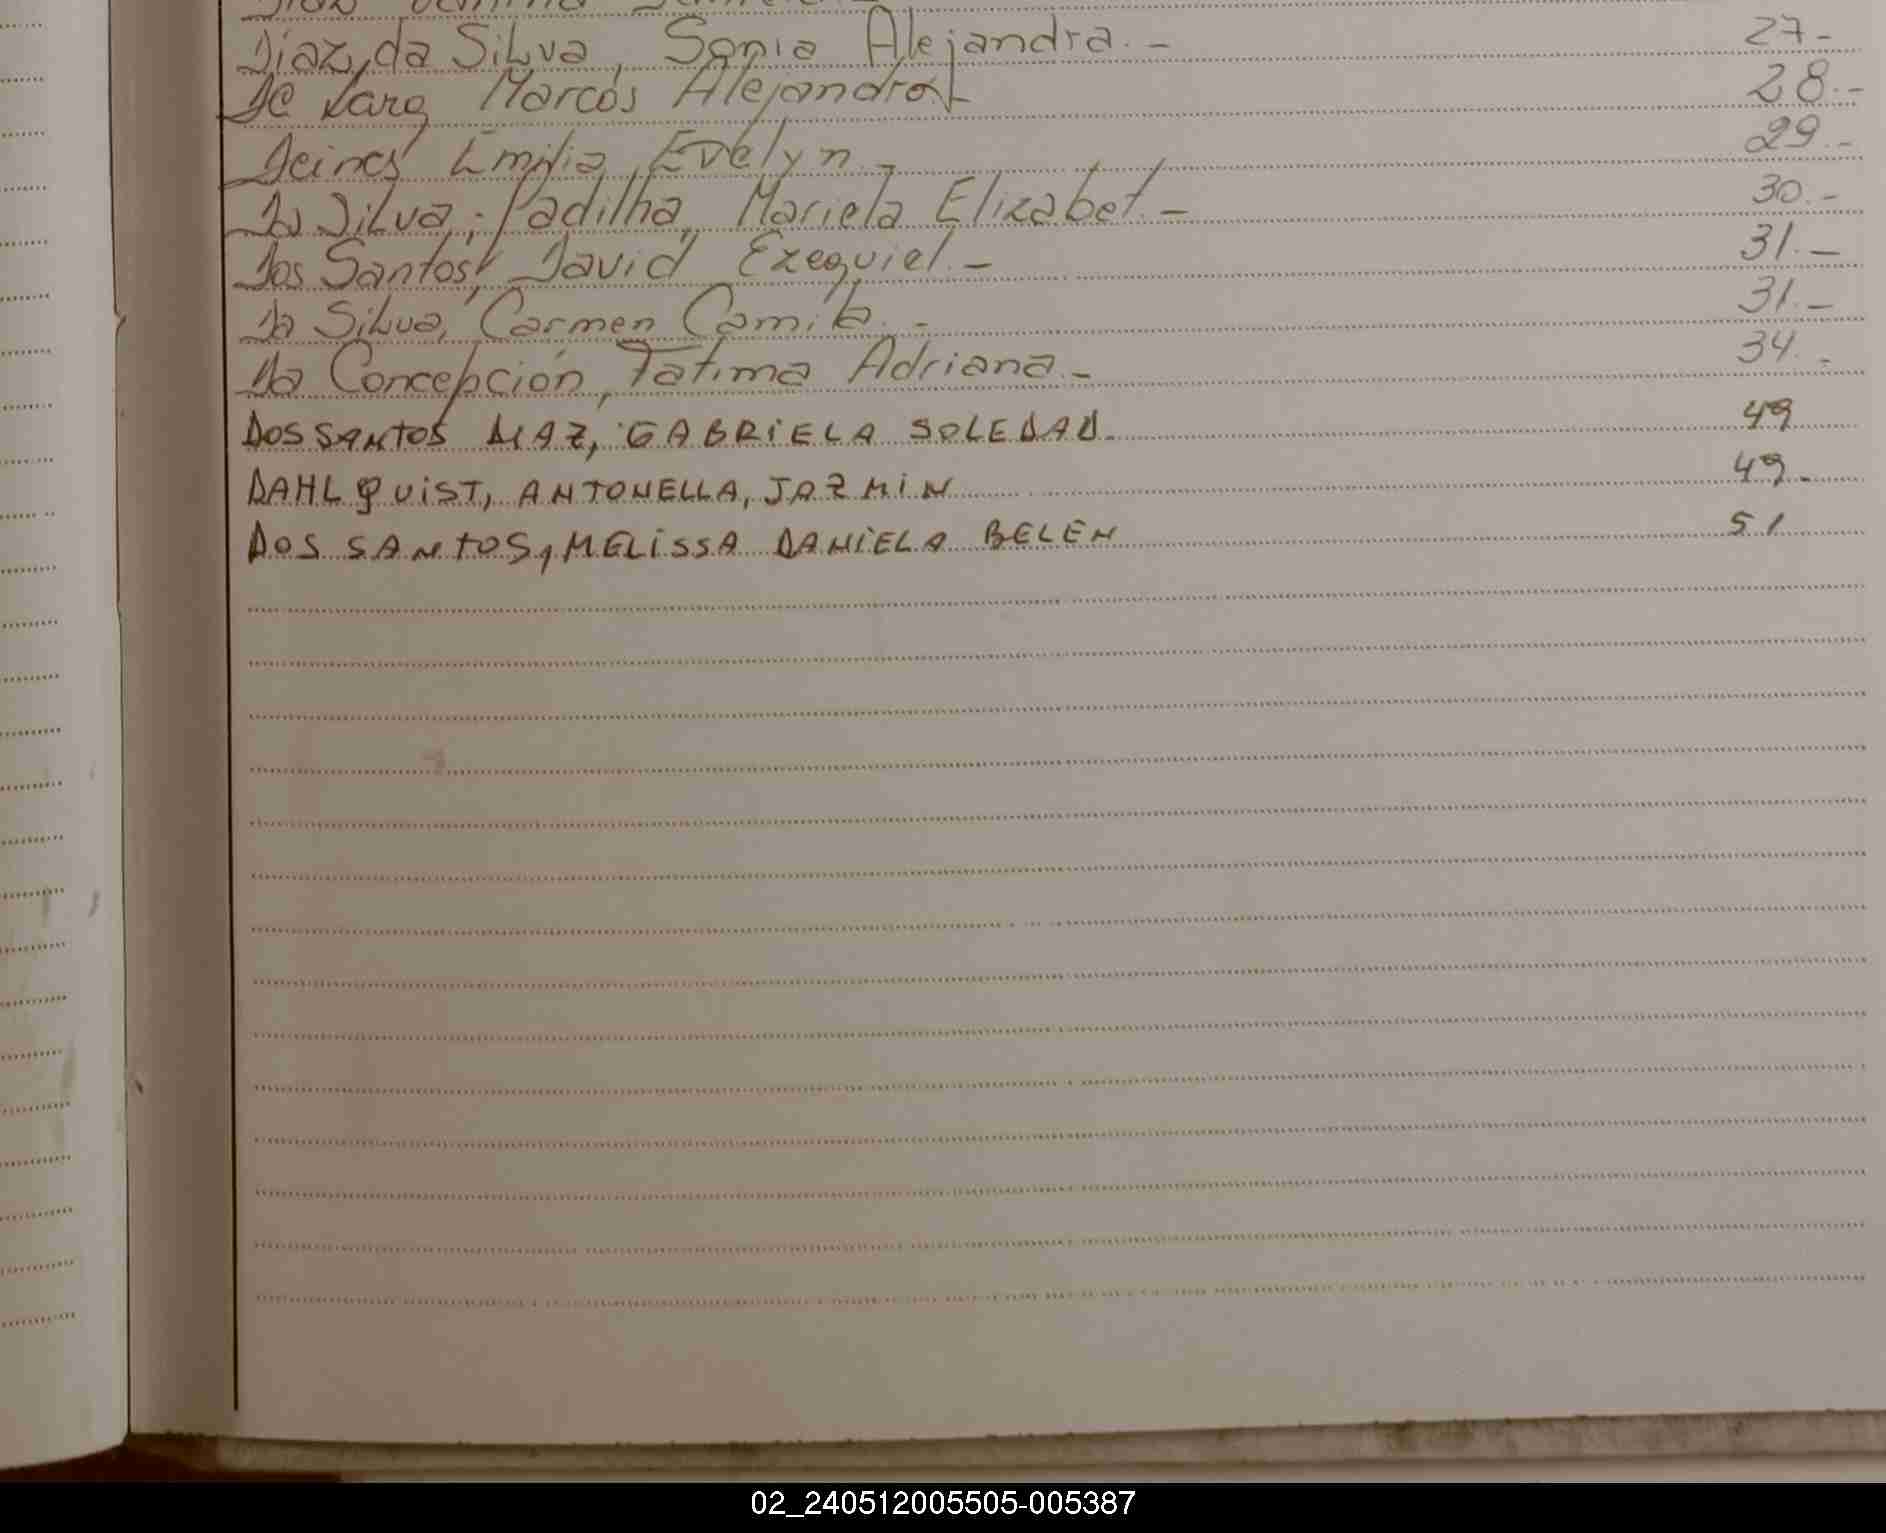 Díaz, da Silva, Sonia Alejandra.- 27-
De Lara, Marcos Alejandro.- 28.-
Deines Emilia, Evelyn.- 29.-
Da Silva; Padilha, Mariela Elizabet.- 30.-
Dos Santos, David Ezequiel.- 31.-
Da Silva, Carmen Camila.- 31.-
Da Concepción, Fatima Adriana.- 34.-
DOS SANTOS DIAZ, GABRIELA SOLEDAD. 49
DAHLQUIST, ANTONELLA, JAZMIN 49.
DOS SANTOS, MELISSA DANIELA BELEN 51
02_240512005505-005387